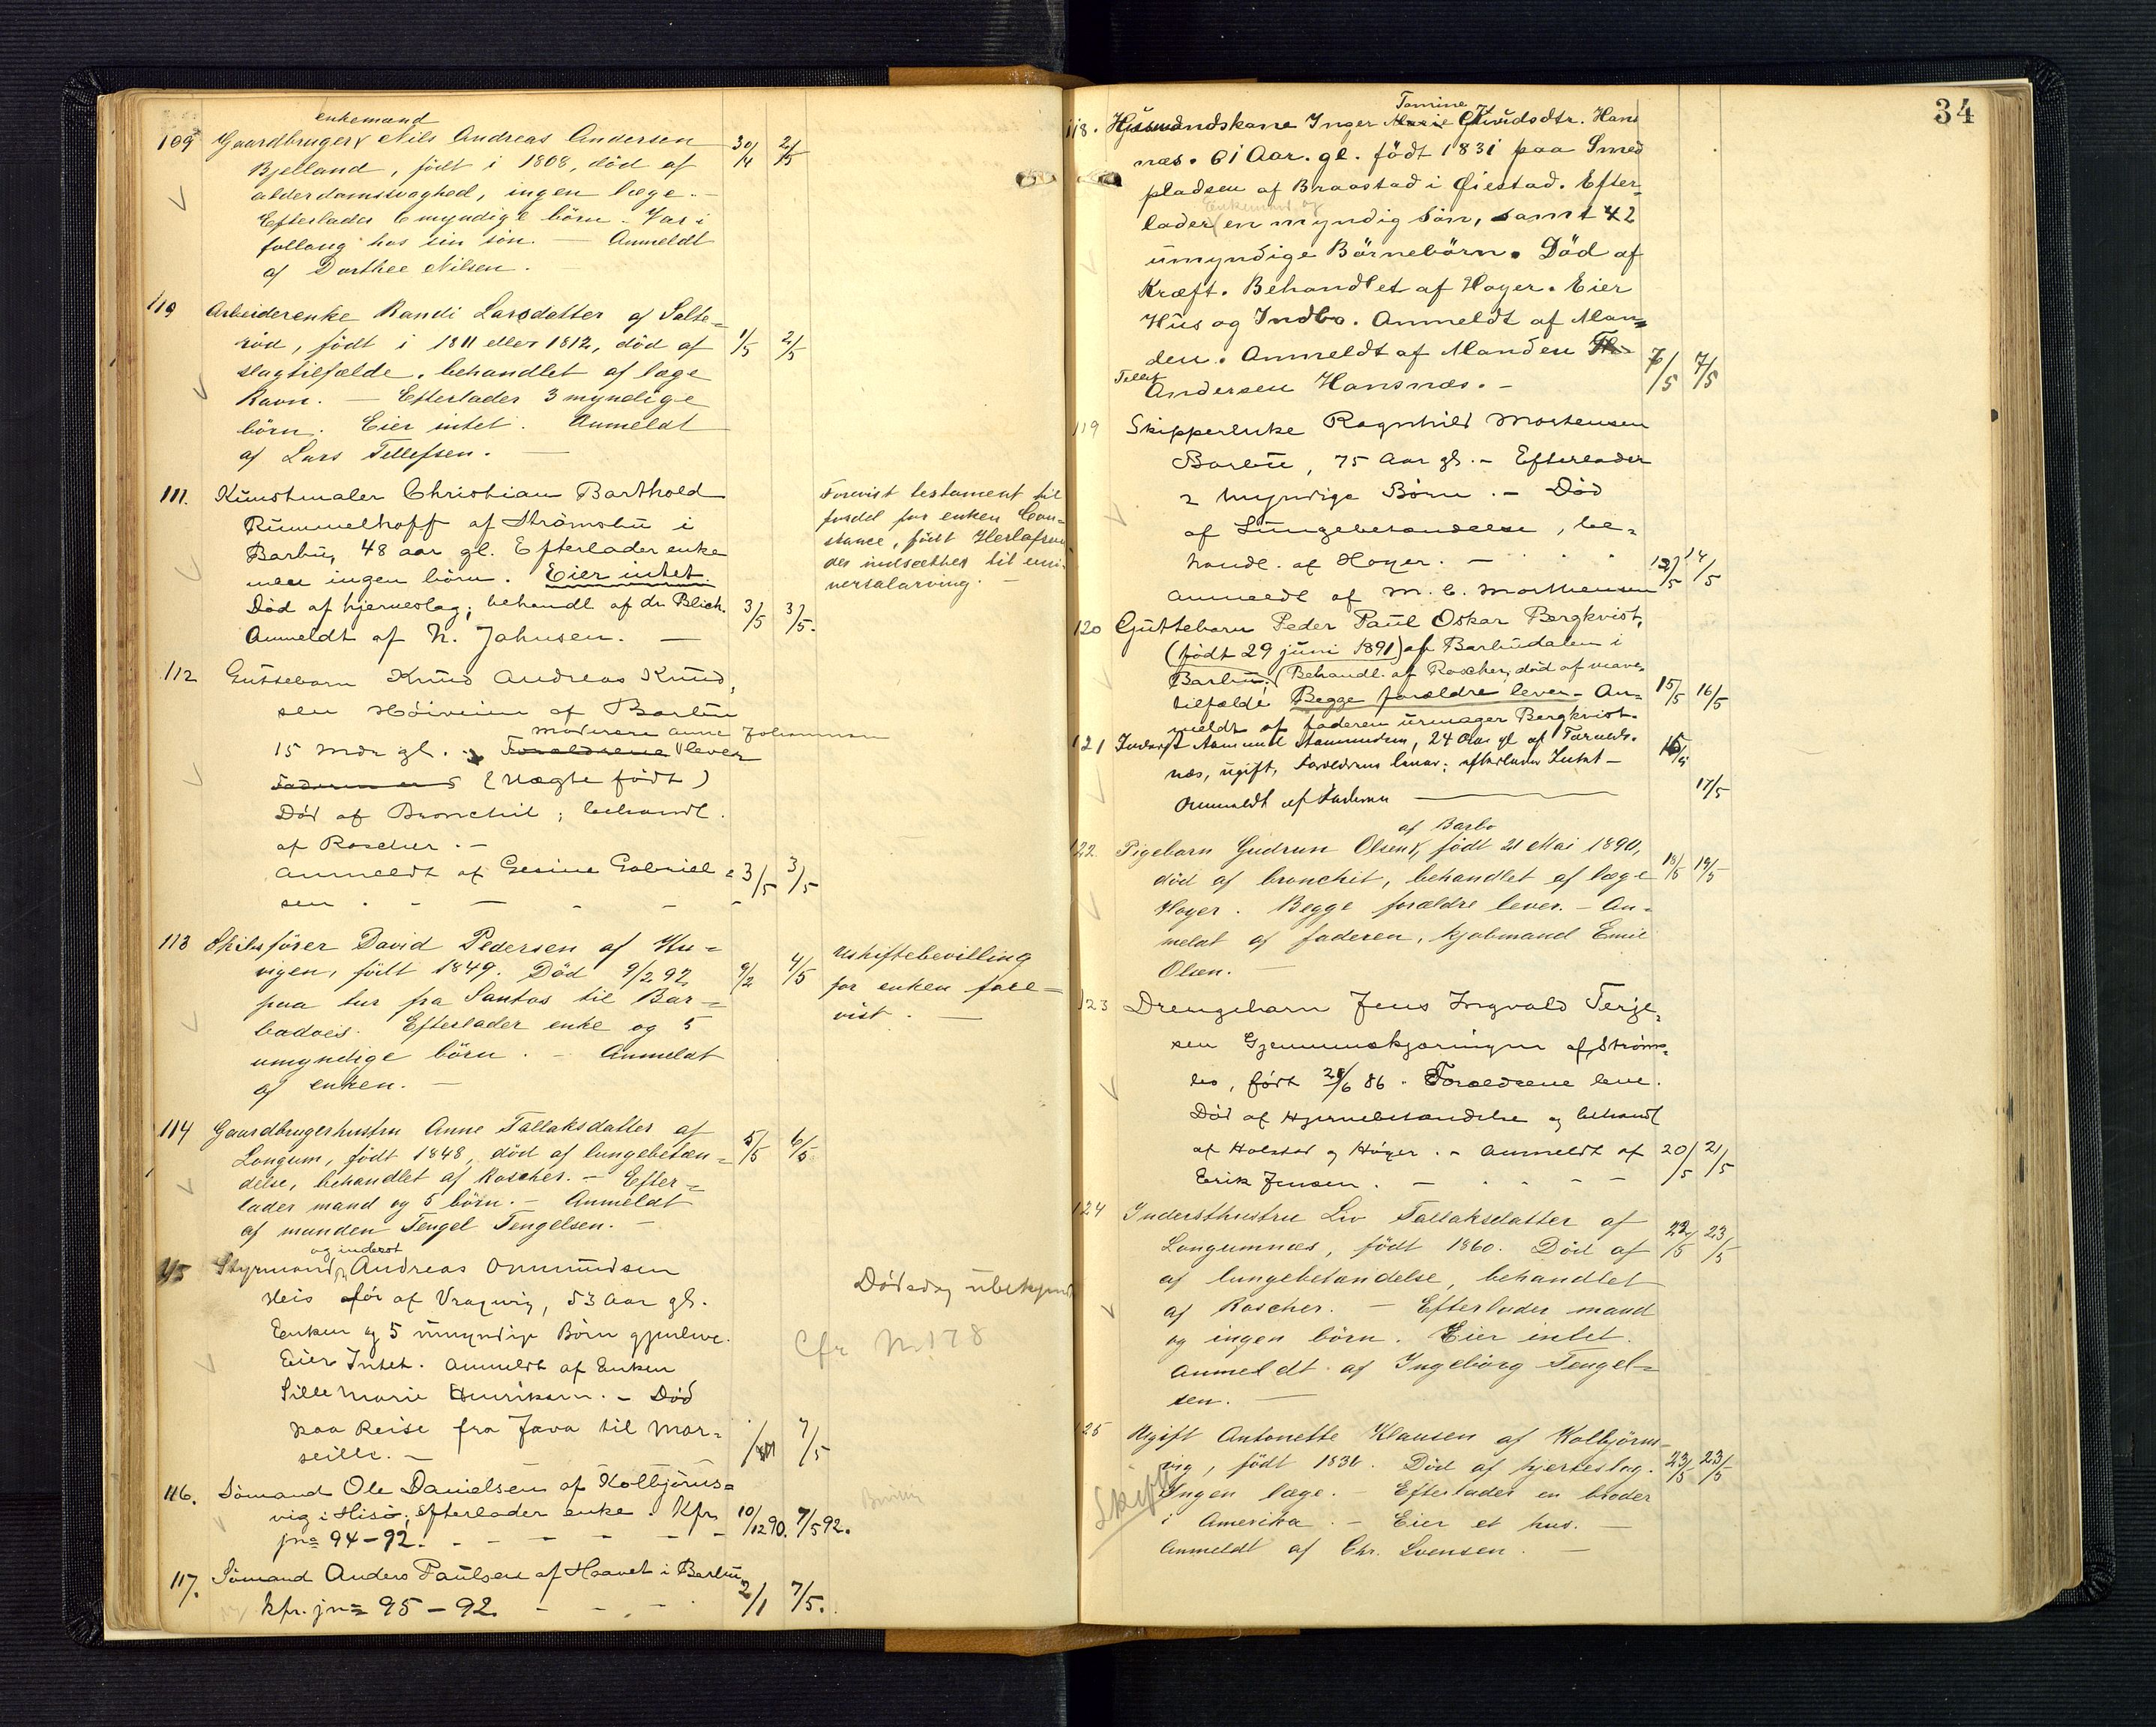 enkemand
109 Gaardbruger Nils Andreas Andersen 30/4 2/5
Bjelland, født i 1808, død af
alderdomssvaghed, ingen læge. -
Efterlader 6 myndige börn. Var i
follaug hos sin sön. — Anmeldt
af Dorthee Nilsen.
110 Arbeiderenke Randi Larsdatter af Salte=
röd, født i 1811 eller 1812, död af 1/5 2/5
slagtilfælde. behandlet af læge
Ravn. — Efterlader 3 myndige
börn. Eier intet. Anmeldt
af Lars Tellefsen. —
111. Kunstmaler Christian Barthold
Rummelhoff af Strömsbu i
Barbu, 48 aar gl. Efterlader enke
men ingen börn. Eier intet.
Död af hjerneslag; behandl af dr Blich. 3/5 3/5.
Anmeldt af N. Jahnsen. —
Forevist testament til
fordel for enken Con=
stance, født Herlofsen
der indsættes til uni=
versalarving. —
112 Guttebarn Knud Andreas Knud,
sen Höiveien af Barbu
moderen Anne Johannsen
15 Mdr gl. Forældrene lever
(Uægte født)
Död af Bronchit; behandl.
af Roscher. -
Anmeldt af Gesine Gabriel= 3/5 3/5
sen . - - - - -
113 Skibsförer David Pedersen af Hu=
vigen, født 1849. Död 9/2 92 9/2 4/5
paa tur fra Santos til Bar=
badoes. Efterlader enke og 5
umyndige börn. - Anmeldt
af enken. —
Uskiftebevilling
for enken fore=
vist. —
114 Gaardbrugerhustru Anne Tallaksdatter af
Longum, født 1848, död af lungebetæn= 5/5 6/5
delse, behandlet af Roscher. - Efter=
lader mand og 5 börn. - Anmeldt
af manden Tengel Tengelsen. -
og inderst
115 Styrmand Andreas Ommundsen
Heis af Vragvig, 53 Aar gl.
Enken og 5 umyndige Börn gjenleve.
Eier Intet. Anmeldt af Enken
Sille Marie Henriksen. - Död
paa Reise fra Java til Mar= 7/5
seille. -
Dödsdag ubekjendt
Cfr No 178
116. Sömand Ole Danielsen af Kolbjörns=
vig i Hisö; efterlader enke. Kfr. 10/12 90. 7/5 92.
jn= 94-92. - - - - -
117. Sömand Anders Paulsen af Haavet i Barbu
kfr. jn= 95-92. - - - 2/1 7/5.
34
Tomine
118. Husmandskone Inger Marie Knudsdtr. Hans
næs. 61 Aar. gl. født 1831 paa Smed
pladsen af Braastad i Öiestad. Efter=
Enkemand og
lader en myndig sön, samt 42
umyndige Börnebörn. Död af
Kræft. Behandlet af Hoyer. Eier
Hus og Indbo. Anmeldt af Man=
den. Anmeldt af Manden 7/5 7/5
Tellef
Andersen Hansnæs. -
119 Skipperenke Ragnhild Mortensen
Barbu, 75 Aar gl. - Efterlader
2 myndige Börn. - Död
af Lungebetændelse, be=
handl. af Hoyer. - 12/5 14/5
Anmeldt af M. C. Morthensen
120 Guttebarn Peder Paul Oskar Bergkvist,
(født 29 juni 1891) af Barbudalen i
Barbu; (Behandl. af Roscher, död af mave=
tilfælde. Begge forældre lever - An= 15/5 16/5
meldt af faderen urmager Bergkvist.
121 Inderst Aamund Aamundsen, 24 Aar gl af
næs, ugift, Forældrene lever; efterlader Intet -
Anmeldt af Faderen — 17/5
af Barbo
122. Pigebarn Gudrun Olsen, født 21 Mai 1890, 18/5 19/5
död af bronchit, behandlet af læge
Hoyer. Begge forældre lever. - An=
meldt af faderen, kjøbmand Emil
Olsen. —
123 Drengebarn Jens Ingvald Terje=
sen Gjennemskjæringen af Ströms=
bo, født 28/6 86. Forældrene leve.
Död af Hjernebetændelse og behandl
af Holsted og Höyer. - Anmeldt af 20/5 21/5
Erik Jensen. - - - - -
124 Ndersthustru Liv Tallaksdatter af
Longumnæs, født 1860. Död af 22/5 23/5
af lungebetændelse, behandlet
af Roscher. - Efterlader mand
og ingen börn. Eier intet.
Anmeldt af Ingeborg Tengel=
sen. —
125 Ugift Antonette Klausen af Kolbjörns=
vig, født 1836. Död af hjerteslag. 23/5 23/5
Ingen læge. - Efterlader en broder
i Amerika. - Eier et hus. —
Anmeldt af Chr. Svensen. —
Skifte